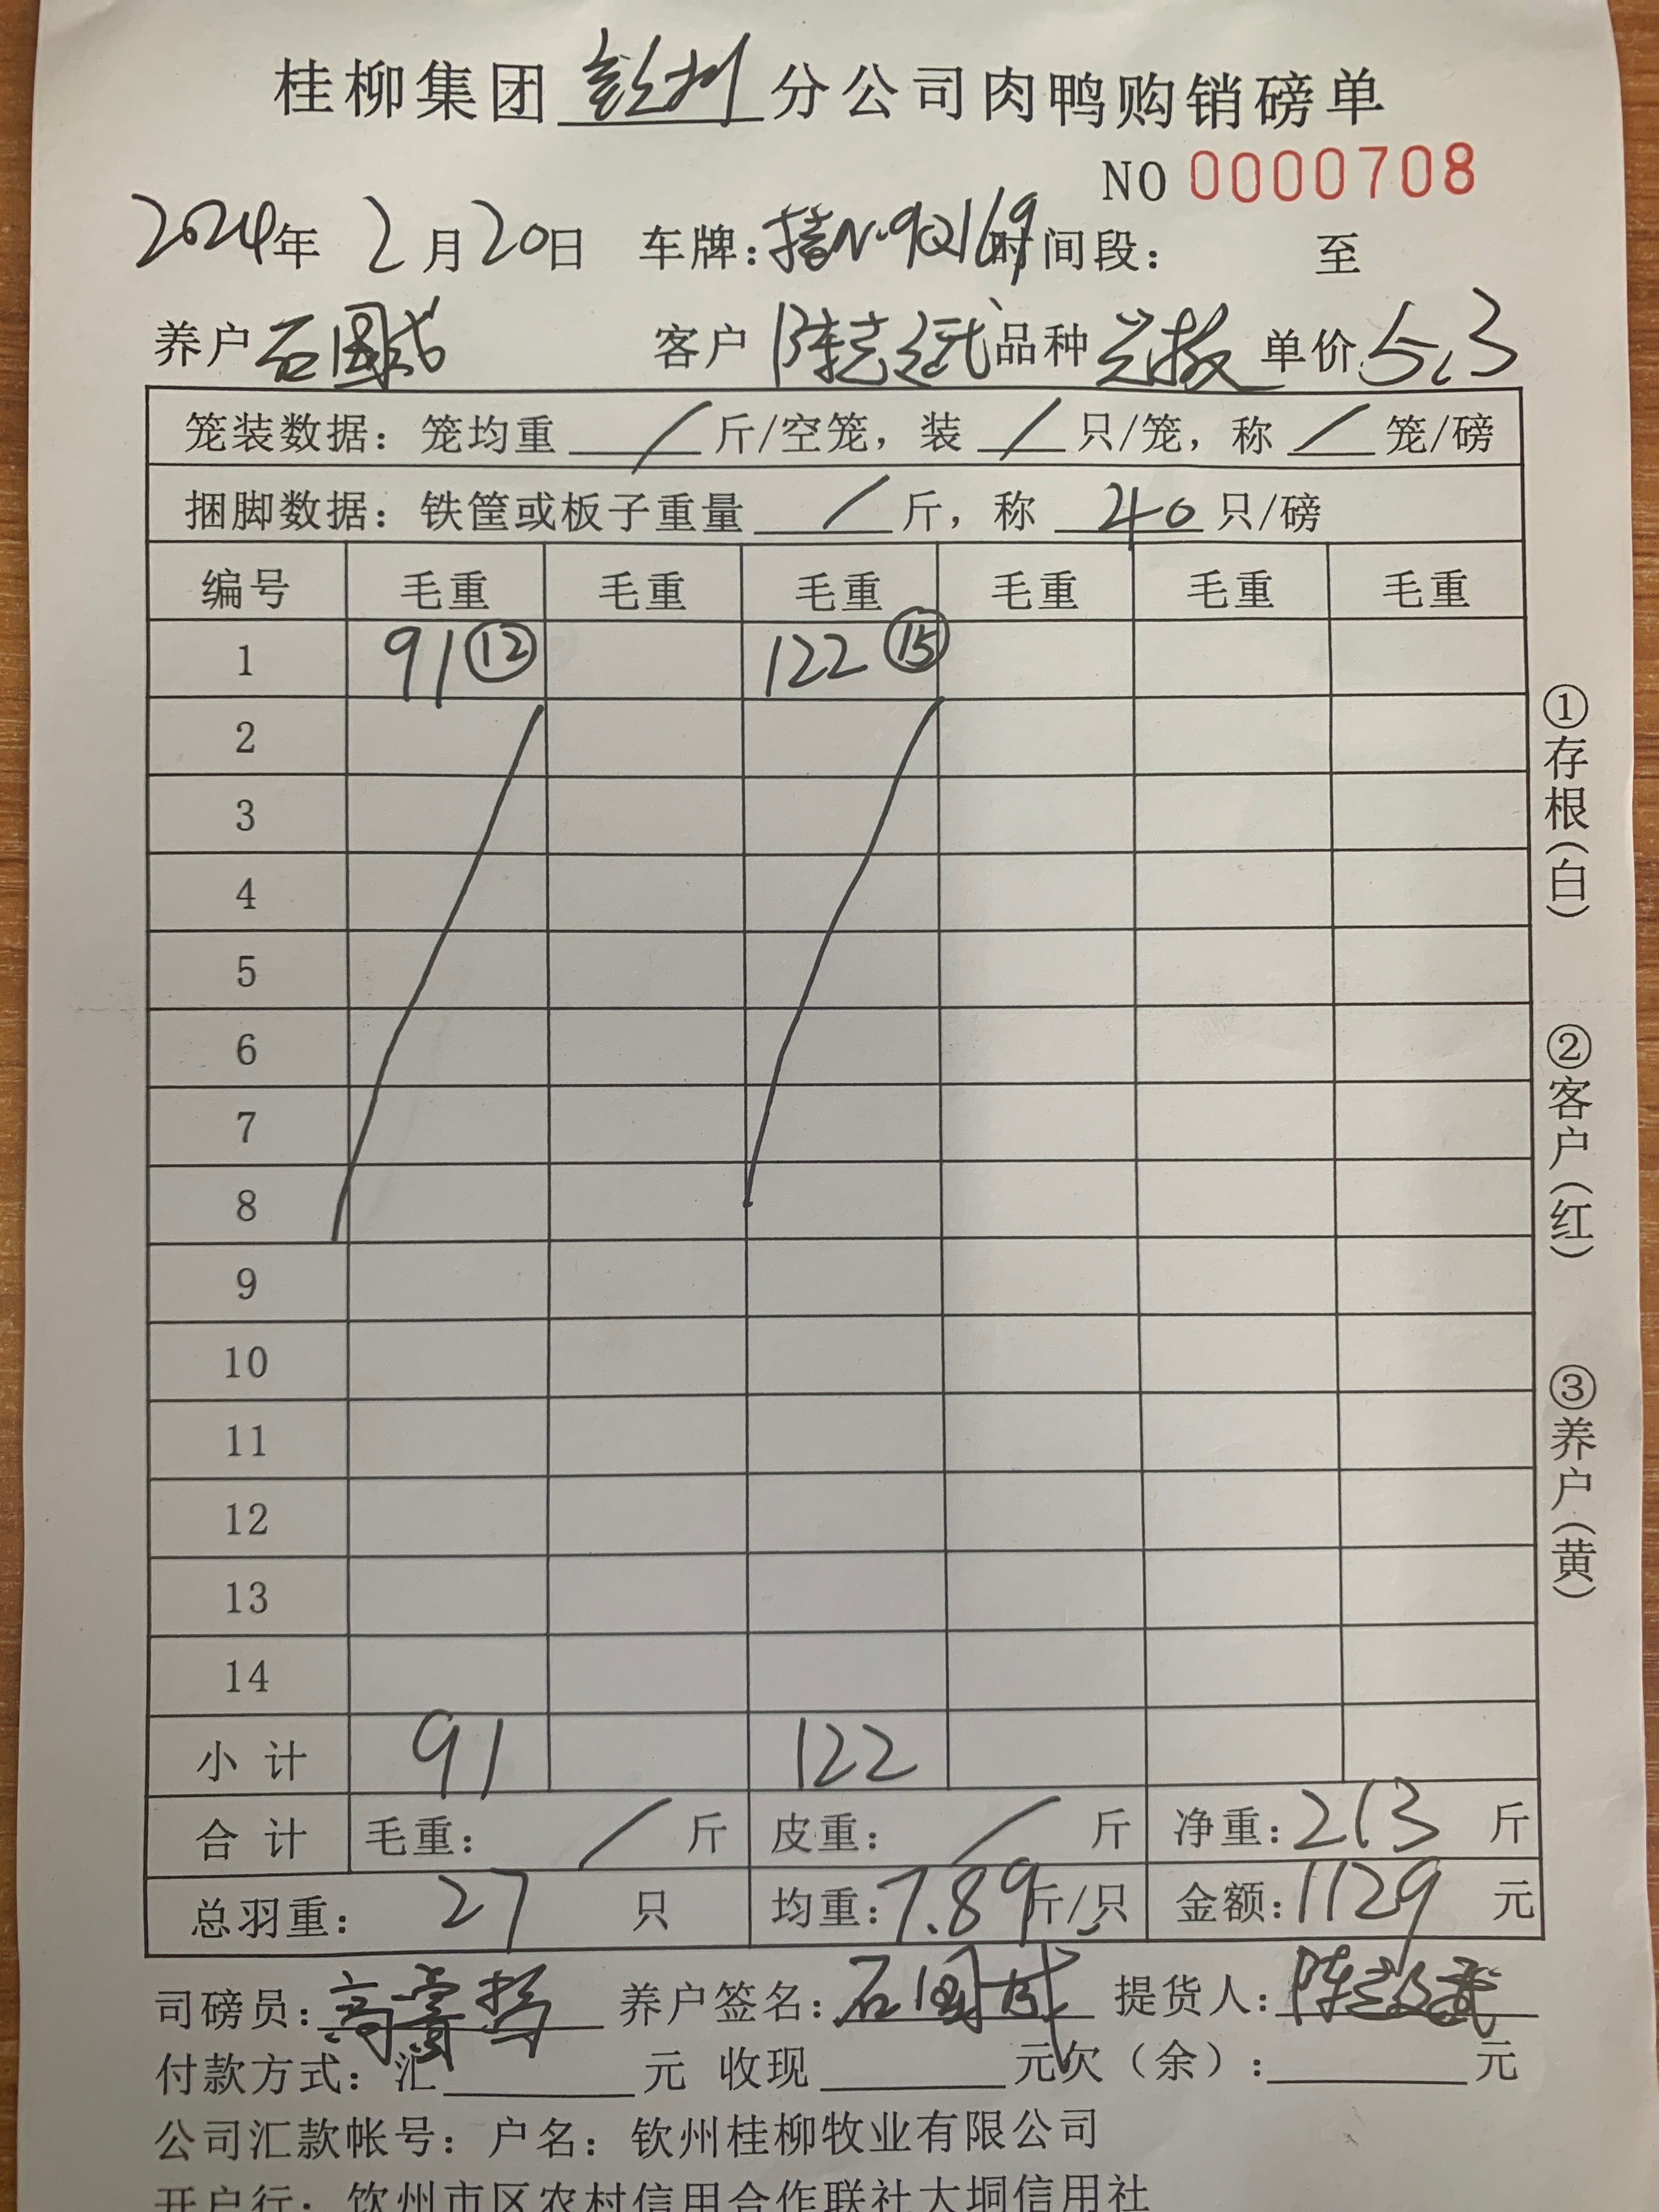 桂柳集团 钦州 分公司肉鸭购销磅单
NO 0000708
2024年 2月20日 车牌: N·9Q169 时间段: 至
养户 石国成 客户 陈 武 品种 单价 5.3
笼装数据: 笼均重 / 斤/空笼, 装 / 只/笼, 称 / 笼/磅
捆脚数据: 铁筐或板子重量 / 斤, 称 40 只/磅
编号 毛重 毛重 毛重 毛重 毛重 毛重
1 91 ⑫ 122 ⑮
2
3
4
5
6
7
8
9
10
11
12
13
14
小 计 91 122
合 计 毛重: / 斤 皮重: / 斤 净重: 213 斤
总羽重: 27 只 均重: 7.89 斤/只 金额: 1129 元
司磅员: 高 养户签名: 石国成 提货人: 陈 武
付款方式: 汇 元 收现 元欠(余): 元
公司汇款帐号: 户名: 钦州桂柳牧业有限公司
开户行: 钦州市区农村信用合作联社大垌信用社
①存根(白)
②客户(红)
③养户(黄)